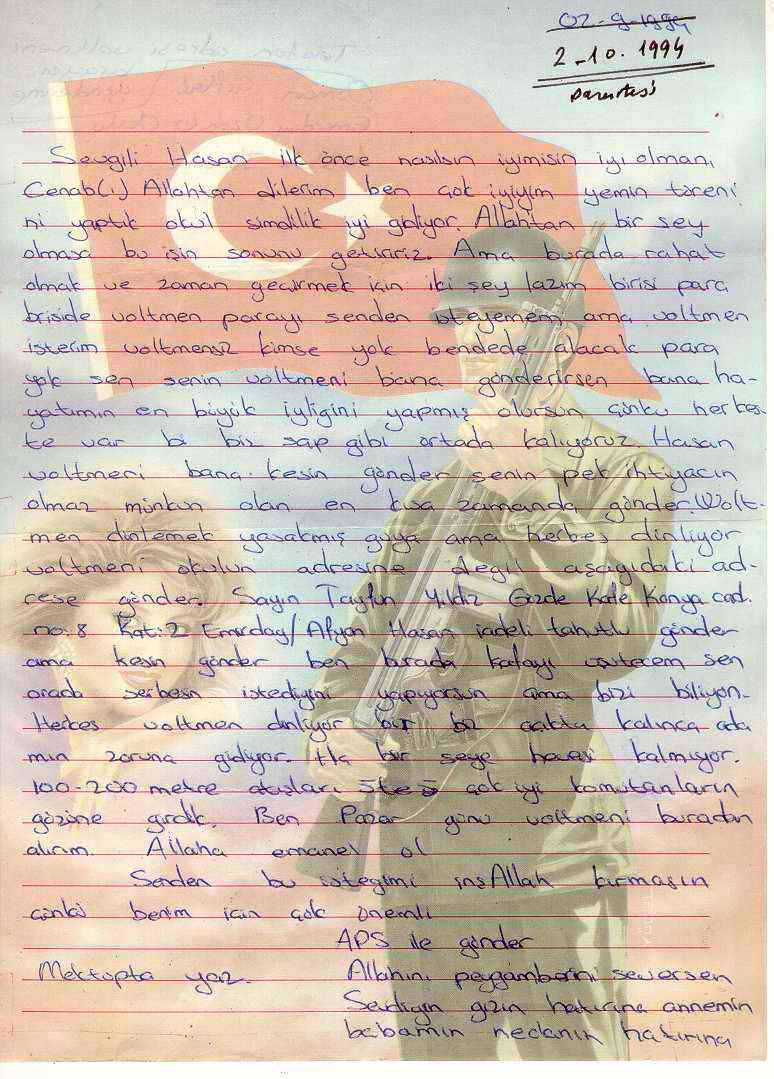 02-9-1994
2-10.1994
Pazartesi
Sevgili Hasan ilk önce nasılsın iyimisin iyi olmanı
Cenab(ı) Allahtan dilerim ben çok iyiyim yemin töreni
ni yaptık okul simdilik iyi gidiyor. Allahtan bir sey
olmasa bu işin sonunu getiririz. Ama burada rahat
olmak ve zaman geçirmek için iki şey lazım birisi para
briside voltmen parayı senden isteyemem ama voltmen
isterim voltmensiz kimse yok bendede alacak para
yok sen senin voltmeni bana gönderirsen bana ha-
yatımın en büyük iyligini yapmış olursun çünkü herkes-
te var bi biz sap gibi ortada kalıyoruz. Hasan
voltmeni bana kesin gönder senin pek ihtiyacın
olmaz münkün olan en kısa zamanda gönder. Wolt-
men dinlemek yasakmış güya ama herkes dinliyor
voltmeni okulun adresine degil aşagıdaki ad-
rese gönder. Sayın Tayfun Yıldız Gözde Kafe Konya cad.
no:8 Kat:2 Emirdag/Afyon Hasan iadeli tahutlu gönder
ama kesin gönder ben burada kafayı sen
orada serbesin istediyini yapıyorsun ama bizi biliyon.
Herkes voltmen dinliyor bir biz açıkta kalınca ada
mın zoruna gidiyor. bir seye hevesi kalmıyor.
100-200 metre atışları çok iyi komutanların
gözüne girdik. Ben Pazar günü voltmeni buradan
alırım. Allaha emanet ol
Senden bu istegimi inşAllah kırmasın
çünkü benim için çok önemli
APS ile gönder
Mektupta yaz. Allahını peygamberini seversen
Sevdigin gızın hatırına annemin
babamın nedanın hatırına